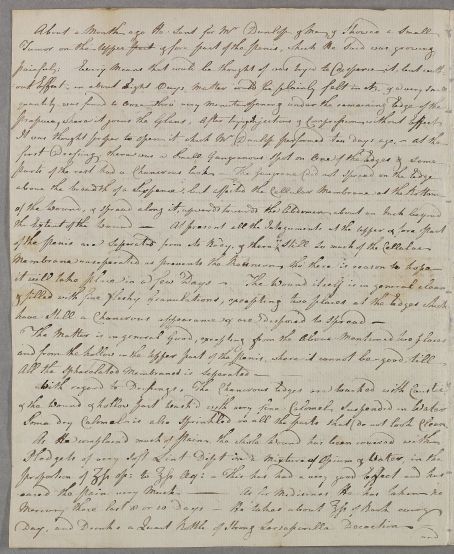 About a Month ago He Sent for Mr Dunlop & Shewed a Small
Tumor on the Upper part & fore part of the Penis, which He Said was growing
painful; Every Means that could be thought of was tryed to Disperse it, but with
out Effect; in about Eight Days Matter could be plainly felt in it, & a very Small
quantity was found to Ooze thro' a very minute Opening under the remaining Edge of the
Preputium, where it joins the Glans. After trying Injections & Compression without Effect
It was thought proper to open it which Mr Dunlop performed ten days ago, — at the
first Dressing there was a Small Gangrenous Spot on One of the Edges & Some
parts of the rest had a Chancrous look — The gangrene did not Spread on the Edge
above the breadth of a Sixpence, but affected the Cellular Membrane at the Bottom
of the Wound, & spread along it, upwards towards the Abdomen about an Inch beyond
the Extent of the Wound — At present all the Integuments at the Upper & fore part
of the Penis are Seperated from its Body, & there is Still So much of the Cellular
Membrane unseparated as prevents the Reunion, tho there is reason to hope
it will take place in a few Days — The Wound itself is in general clean
& filled with fine fleshy Granulations, excepting two places at the Edges which
have Still a Chancrous appearance & are disposed to Spread —
The Matter is in general Good, excepting from the Above Mentioned two places
and from the hollow in the Upper part of the Penis, where it cannot be good till
All the Sphacelated Membrane is Seperated —
With regard to Dressings, The Chancrous Edges are touched with Caustic
& the Wound & hollow part wash'd with very fine Calomel Suspended in Water
Some dry Calomel is also Sprinkled on all the parts that do not look Clean
As He complained much of Pain, the whole Wound has been covered with
Pledgets of very Soft Lint Dipt in a Mixture of Opium & Water, in the
proportion of — This has had a very good Effect and has
eased the Pain very Much — As for Medicines He has taken no
Mercury these last 8 or 10 Days — He takes about of Bark every
Day, and Drinks a Quart Bottle of Strong Sarsaparilla Decoction —
and